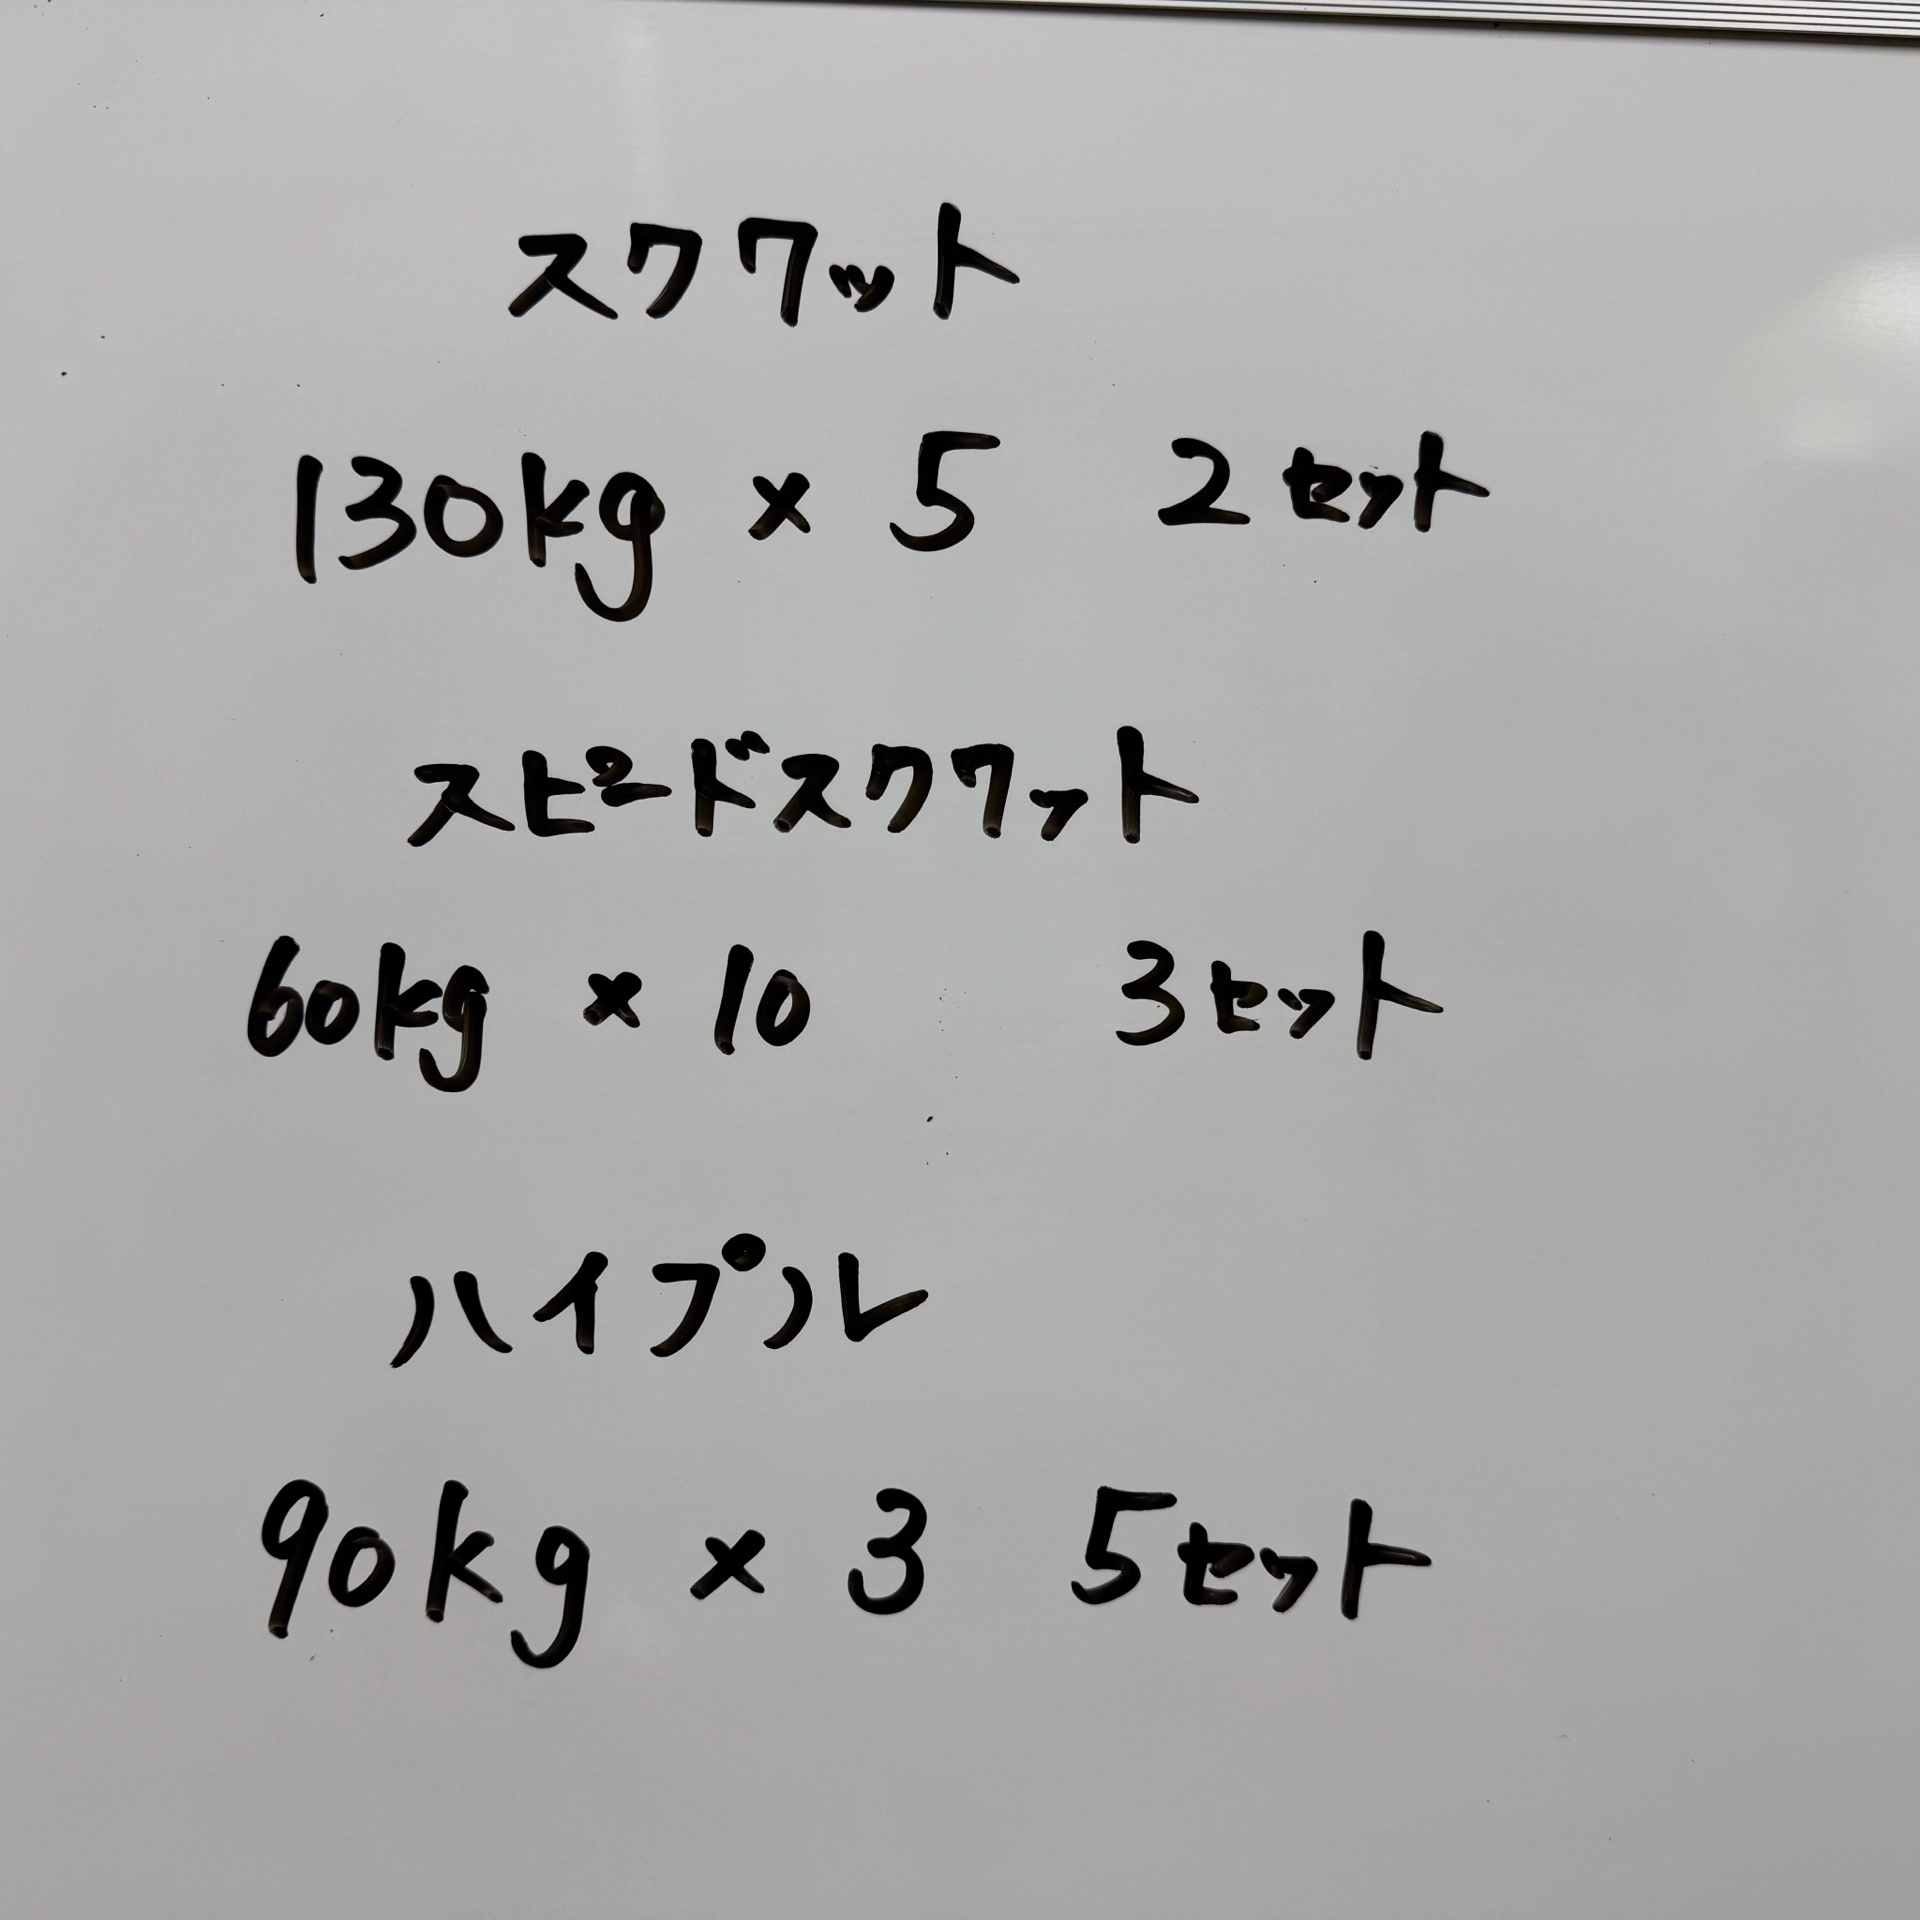 スクワット
130kg × 5 2セット
スピードスクワット
60kg × 10 3セット
ハイプル
90kg × 3 5セット